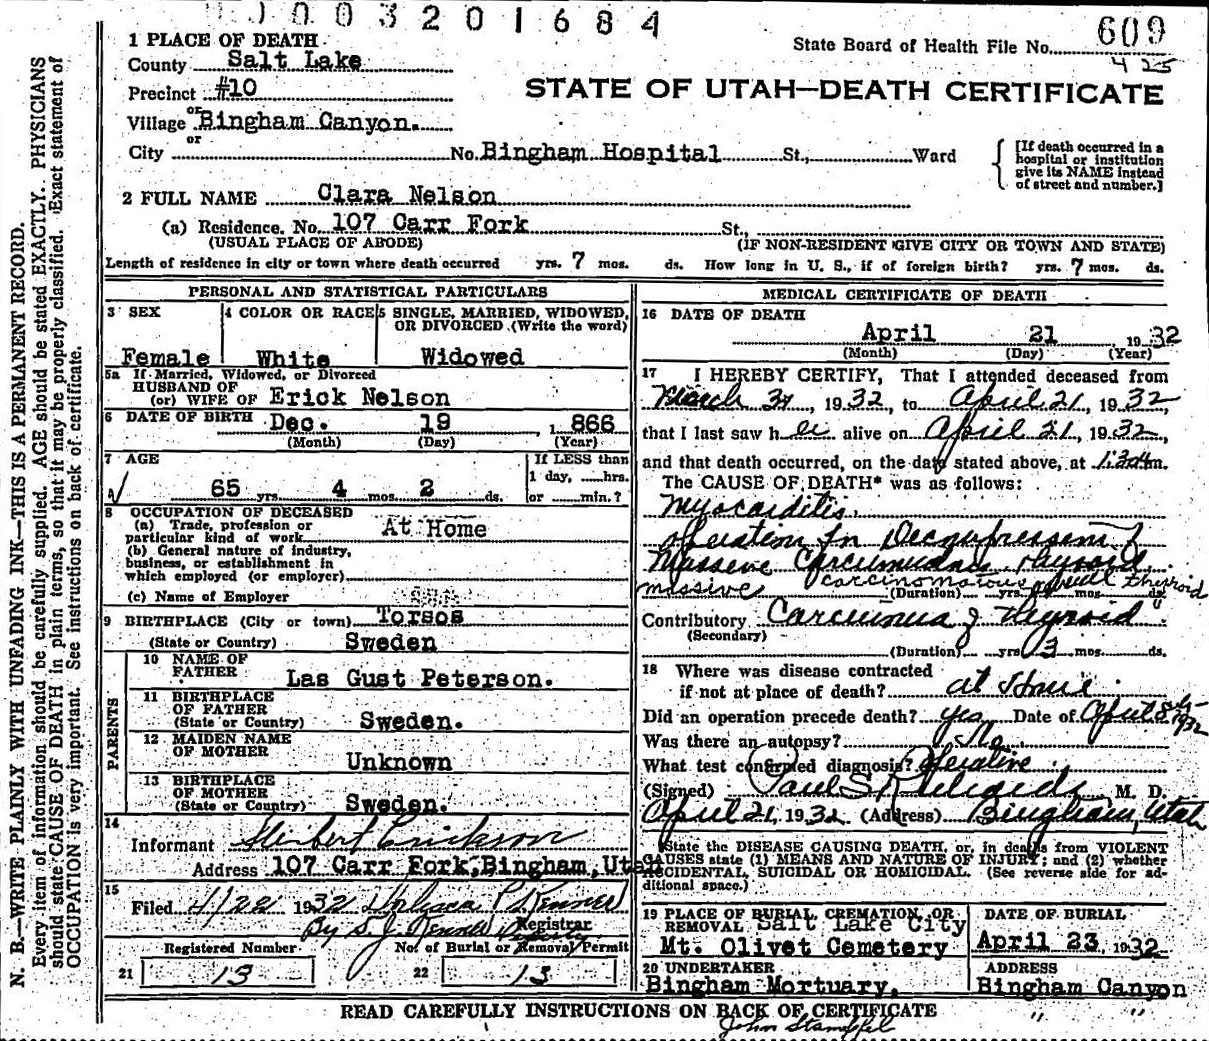 0003201684
State Board of Health File No. 609
425
STATE OF UTAH—DEATH CERTIFICATE
1 PLACE OF DEATH
County Salt Lake
Precinct #10
or
Village Bingham Canyon.
or
City No. Bingham Hospital St., Ward
[If death occurred in a
hospital or institution
give its NAME instead
of street and number.]
2 FULL NAME Clara Nelson
(a) Residence. No. 107 Carr Fork St.,
(USUAL PLACE OF ABODE) (IF NON-RESIDENT GIVE CITY OR TOWN AND STATE)
Length of residence in city or town where death occurred yrs. 7 mos. ds. How long in U. S., if of foreign birth? yrs. 7 mos. ds.
PERSONAL AND STATISTICAL PARTICULARS
3 SEX
Female
4 COLOR OR RACE
White
5 SINGLE, MARRIED, WIDOWED,
OR DIVORCED (Write the word)
Widowed
5a If Married, Widowed, or Divorced
HUSBAND OF
(or) WIFE OF Erick Nelson
6 DATE OF BIRTH Dec. 19 1866
(Month) (Day) (Year)
7 AGE
65 yrs. 4 mos. 2 ds.
If LESS than
1 day, hrs.
or min.?
8 OCCUPATION OF DECEASED
(a) Trade, profession or
particular kind of work At Home
(b) General nature of industry,
business, or establishment in
which employed (or employer)
(c) Name of Employer
9 BIRTHPLACE (City or town) Torsos
(State or Country) Sweden
PARENTS
10 NAME OF
FATHER Las Gust Peterson.
11 BIRTHPLACE
OF FATHER
(State or Country) Sweden.
12 MAIDEN NAME
OF MOTHER Unknown
13 BIRTHPLACE
OF MOTHER
(State or Country) Sweden.
14
Informant Herbert Erickson
Address 107 Carr Fork, Bingham, Utah
15
Filed 4/22 1932
By S. J. Registrar
Registered Number No. of Burial or Removal Permit
21 13 22 13
MEDICAL CERTIFICATE OF DEATH
16 DATE OF DEATH
April 21 1932
(Month) (Day) (Year)
17 I HEREBY CERTIFY, That I attended deceased from
March 1932, to April 21, 1932,
that I last saw her alive on April 21, 1932,
and that death occurred, on the date stated above, at m.
The CAUSE OF DEATH* was as follows:
Myocarditis.
operation for Decompression of
Massive Carcinomatous thyroid
massive carcinomatous thyroid
(Duration) yrs. mos. ds.
Contributory Carcinoma of Thyroid
(Secondary)
(Duration) yrs. 3 mos. ds.
18 Where was disease contracted
if not at place of death? at Home.
Did an operation precede death? yes Date of April 8th 1932
Was there an autopsy? No.
What test confirmed diagnosis? Operative.
(Signed) Paul S. Richards M. D.
April 21, 1932 (Address) Bingham, Utah
*State the DISEASE CAUSING DEATH, or, in deaths from VIOLENT
CAUSES state (1) MEANS AND NATURE OF INJURY; and (2) whether
ACCIDENTAL, SUICIDAL OR HOMICIDAL. (See reverse side for ad-
ditional space.)
19 PLACE OF BURIAL, CREMATION, OR
REMOVAL Salt Lake City
Mt. Olivet Cemetery
DATE OF BURIAL
April 23, 1932
20 UNDERTAKER
Bingham Mortuary.
ADDRESS
Bingham Canyon
" "
READ CAREFULLY INSTRUCTIONS ON BACK OF CERTIFICATE
John Stampfel
N. B.—WRITE PLAINLY WITH UNFADING INK—THIS IS A PERMANENT RECORD.
Every item of information should be carefully supplied. AGE should be stated EXACTLY. PHYSICIANS
should state CAUSE OF DEATH in plain terms, so that it may be properly classified. Exact statement of
OCCUPATION is very important. See instructions on back of certificate.